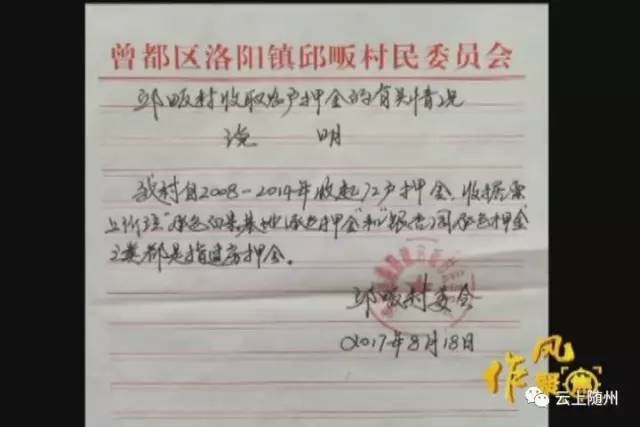 曾都区洛阳镇邱畈村民委员会
邱畈村收取农户押金的有关情况
说 明
我村自2008-2014年收起72户押金，收据票
上所注"承包白果基地承包押金"和"银杏园承包押金"
之类都是指建房押金。
邱畈村委会
2017年8月18日
作风
云上随州